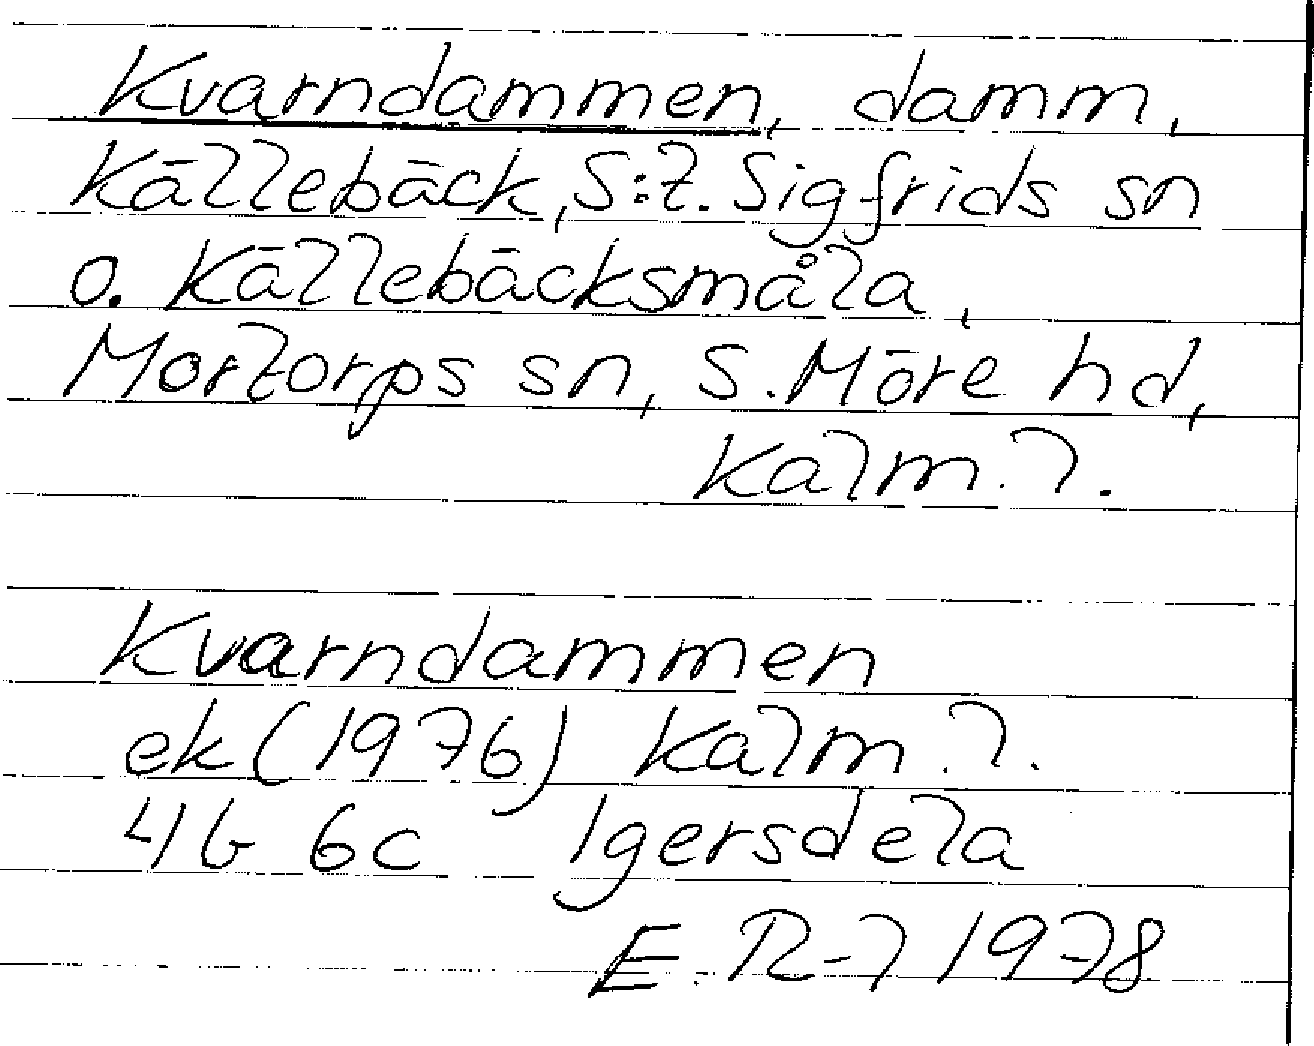 Kvarndammen, damm,
Källebäck, S:t. Sigfrids sn
o. Källebäcksmåla,
Mortorps sn, S. Möre hd,
Kalm. l.
Kvarndammen
ek (1976) Kalm. l.
4G 6c Igersdela
E. R-l 1978